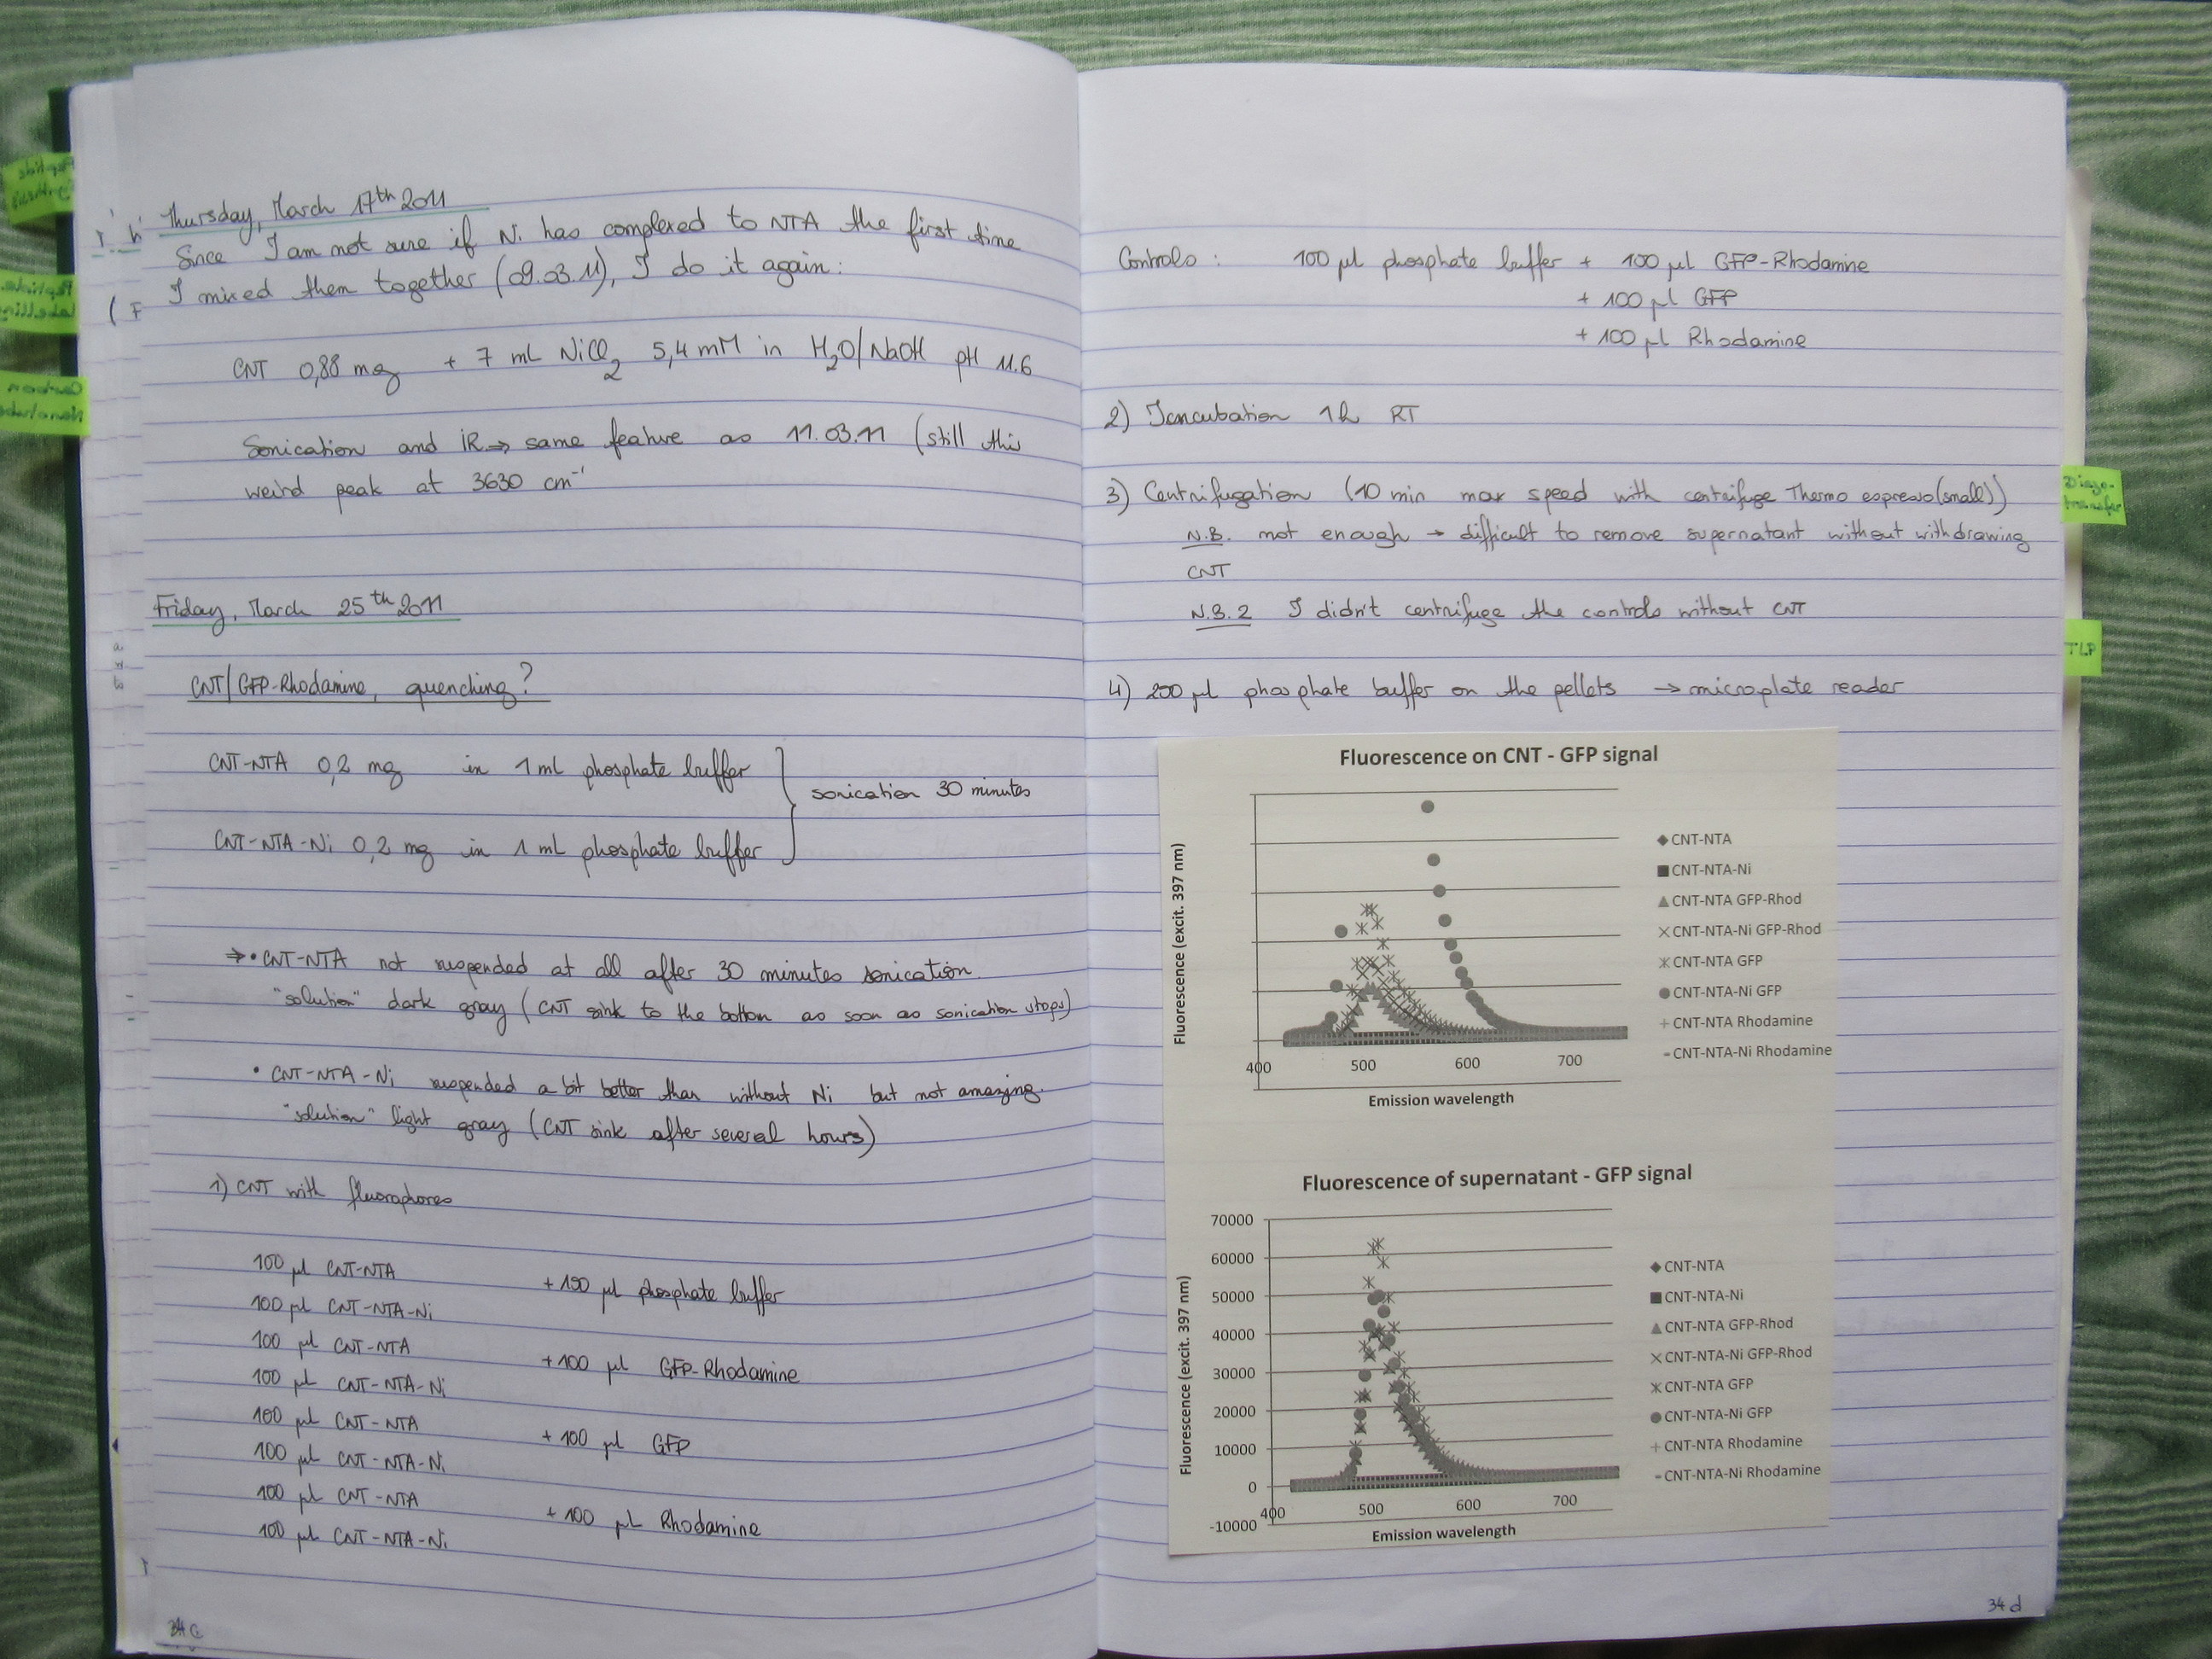 Thursday, March 17th 2011
Since I am not sure if Ni has complexed to NTA the first time
I mixed them together (09.03.11), I do it again:
CNT 0,88 mg + 7 mL NiCl2 5,4 mM in H2O/NaOH pH 11.6
Sonication and IR → same feature as 11.03.11 (still this
weird peak at 3630 cm-1
Friday, March 25th 2011
CNT/GFP-Rhodamine, quenching?
CNT-NTA 0,2 mg in 1 ml phosphate buffer
sonication 30 minutes
CNT-NTA-Ni 0,2 mg in 1 ml phosphate buffer
⇒ • CNT-NTA not suspended at all after 30 minutes sonication.
"solution" dark gray (CNT sink to the bottom as soon as sonication stops)
• CNT-NTA-Ni suspended a bit better than without Ni but not amazing.
"solution" light gray (CNT sink after several hours)
1) CNT with fluorophores
100 µl CNT-NTA
+ 100 µl phosphate buffer
100 µl CNT-NTA-Ni
100 µl CNT-NTA
+ 100 µl GFP-Rhodamine
100 µl CNT-NTA-Ni
100 µl CNT-NTA
+ 100 µl GFP
100 µl CNT-NTA-Ni
100 µl CNT-NTA
+ 100 µl Rhodamine
100 µl CNT-NTA-Ni
34 c
Controls : 100 µl phosphate buffer + 100 µl GFP-Rhodamine
+ 100 µl GFP
+ 100 µl Rhodamine
2) Iancubation 1h RT
3) Centrifugation (10 min max speed with centrifuge Thermo espresso (small))
N.B. not enough → difficult to remove supernatant without withdrawing
CNT
N.B.2 I didn't centrifuge the controls without CNT
4) 200 µl phosphate buffer on the pellets → microplate reader
Fluorescence on CNT - GFP signal
Fluorescence (excit. 397 nm)
400 500 600 700
Emission wavelength
CNT-NTA
CNT-NTA-Ni
CNT-NTA GFP-Rhod
CNT-NTA-Ni GFP-Rhod
CNT-NTA GFP
CNT-NTA-Ni GFP
CNT-NTA Rhodamine
CNT-NTA-Ni Rhodamine
Fluorescence of supernatant - GFP signal
Fluorescence (excit. 397 nm)
70000
60000
50000
40000
30000
20000
10000
0
-10000
400 500 600 700
Emission wavelength
CNT-NTA
CNT-NTA-Ni
CNT-NTA GFP-Rhod
CNT-NTA-Ni GFP-Rhod
CNT-NTA GFP
CNT-NTA-Ni GFP
CNT-NTA Rhodamine
CNT-NTA-Ni Rhodamine
34 d
Diazo-
transfer
TLP
Peptide
Synthesis
Peptide
Labelling
Carbon
Nanotube